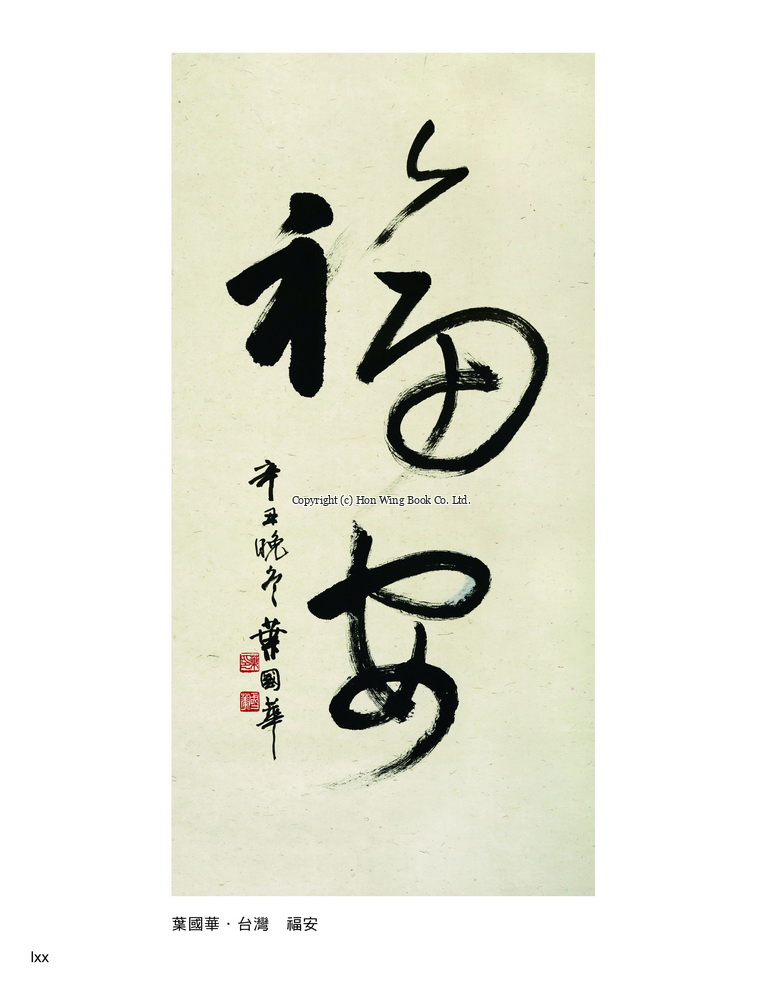 福安
辛丑晚冬 葉國華
Copyright (c) Hon Wing Book Co. Ltd.
葉國華·台灣 福安
lxx